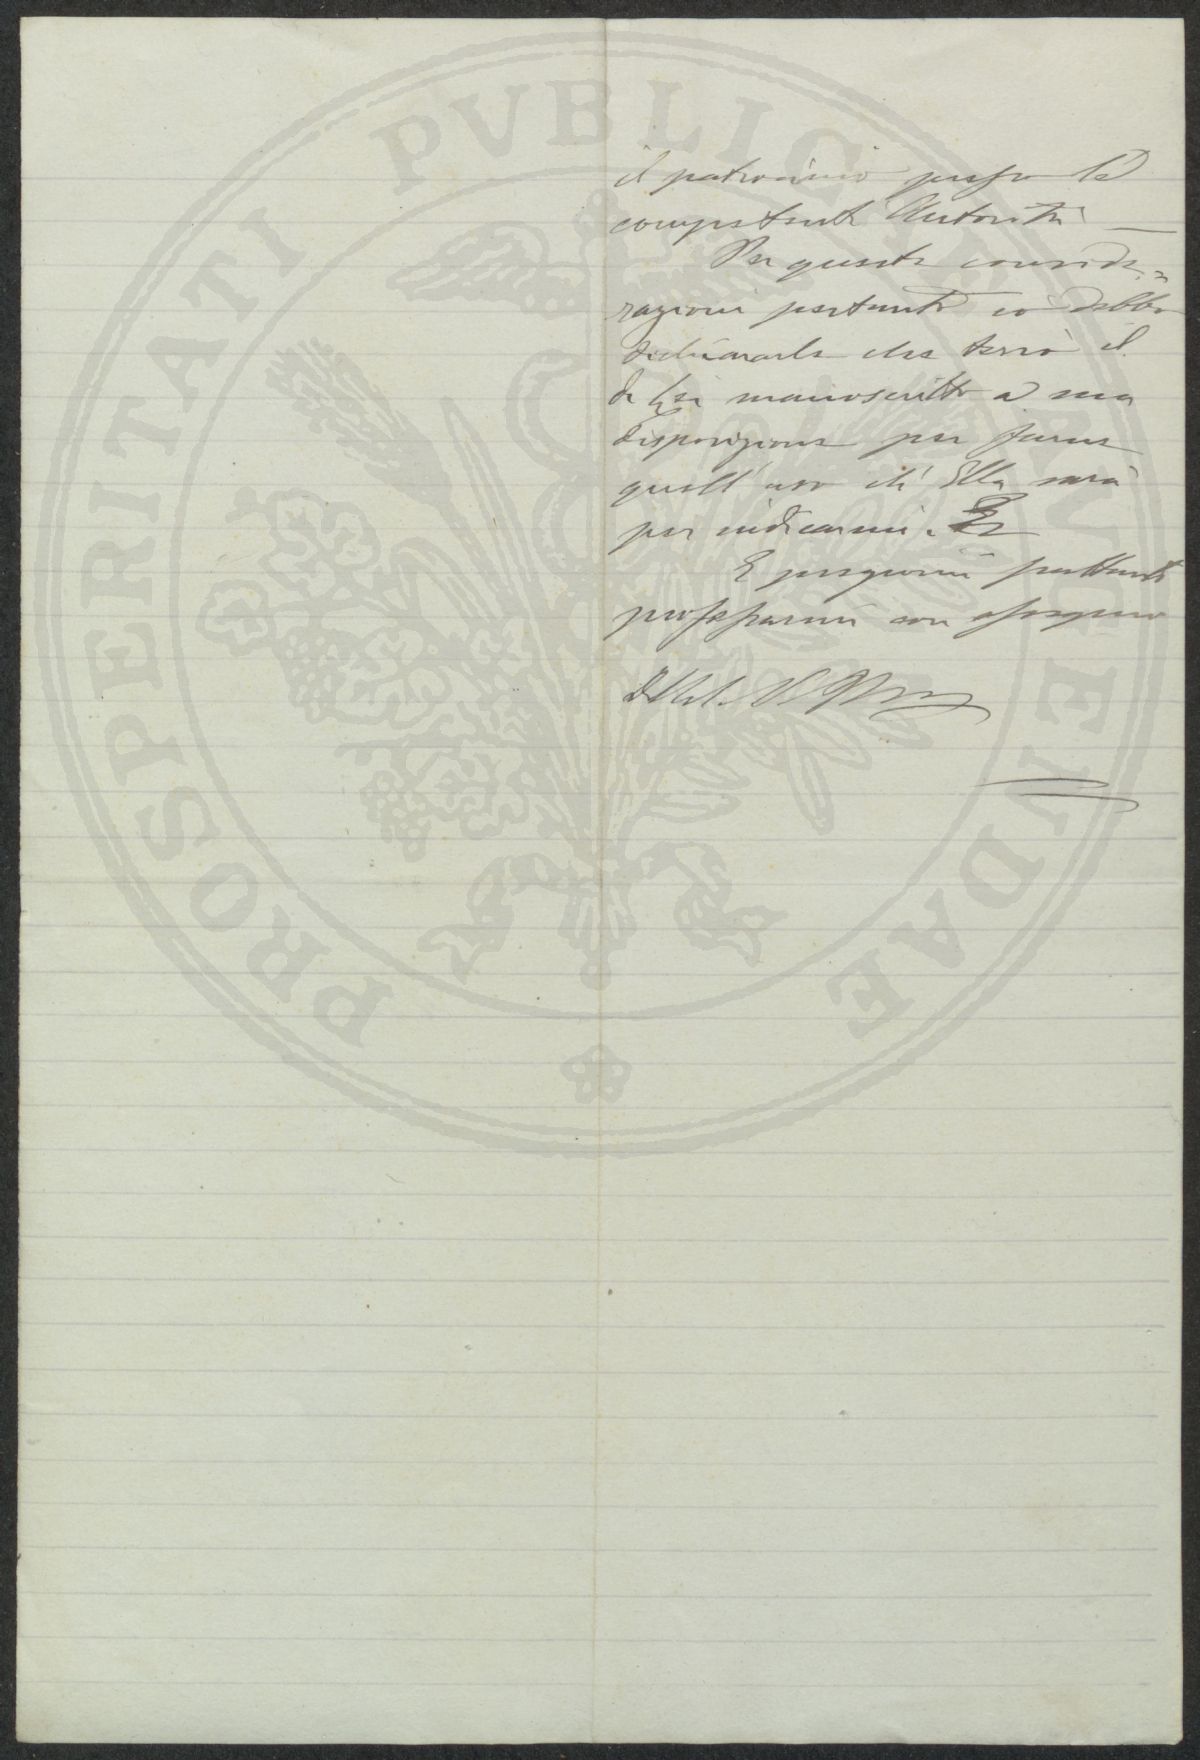 PROSPERITATI PVBLICAE AVGENDAE
il patrocinio presso le
competenti Autorità —
Per queste conside=
razioni pertanto io debbo
dichiararle che terrò il
di Lei manoscritto a sua
disposizione per farne
quell'uso ch'Ella sarà
per indicarmi.
E pregiomi frattanto
professarmi con ossequio